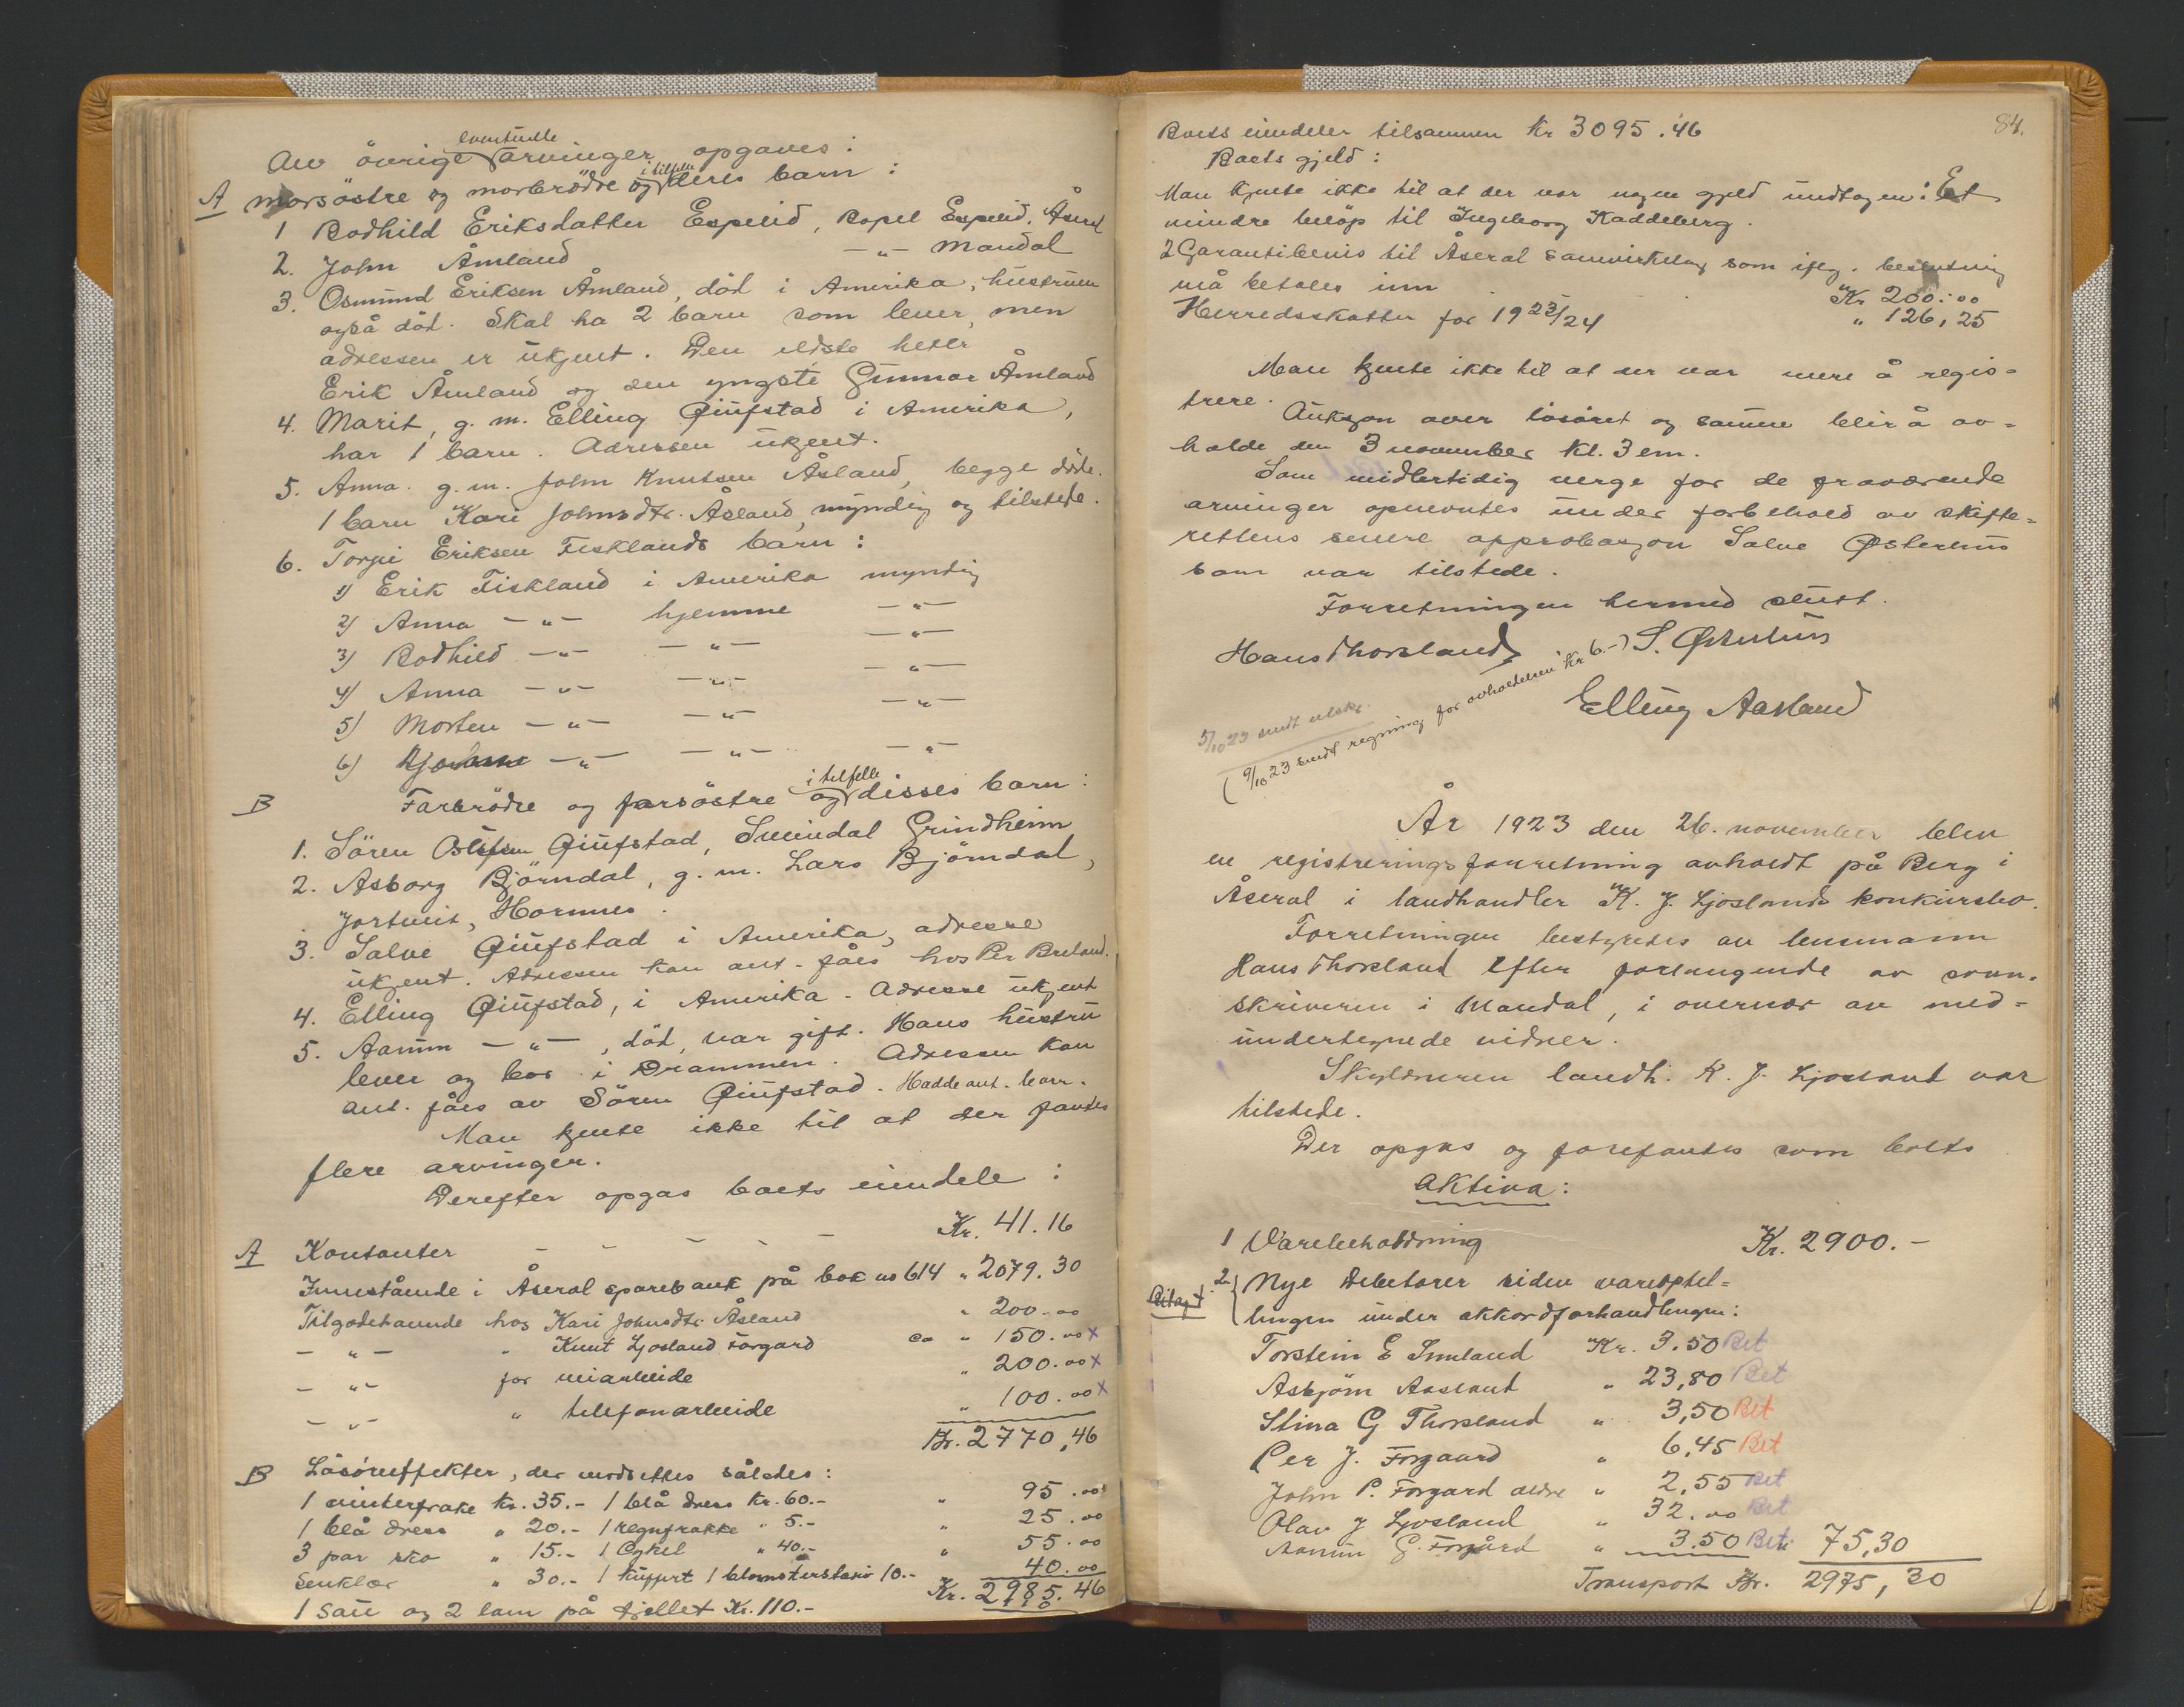 Av övrige eventuelle arvinger opgaves:
A morsöstre og morbrödre og i tilfelle deres barn:
1 Bodhild Eriksdatter Espelid, Bopel Espelid, Åseral
2. John Åmland — " — Mandal
3. Osmund Eriksen Åmland, död i Amerika, hustruen
også död. Skal ha 2 barn som lever, men
adressen er ukjent. Den eldste heter
Erik Åmland og den yngste Gunnar Åmland
4. Marit, g. m. Elling Qiufstad i Amerika,
har 1 barn. Adressen ukjent.
5. Anna. g. m. John Knutsen Åsland, begge döde.
1 barn Kari Johnsdtr. Åsland, myndig og tilstede.
6. Torgei Eriksen Fisklands barn:
1) Erik Fiskland i Amerika myndig
2) Anna — " — hjemme — " —
3) Bodhild — " — — " — — " —
4) Anna — " — — " — — " —
5) Morten — " — — " — — " —
6) — " — — " — — " —
B Farbrödre og farsöstre og i tilfelle disses barn:
1. Sören Qiufstad, Smeindal Grindheim
2. Asborg Björndal, g. m. Lars Björndal,
Jortveit, Hornnes.
3. Salve Qiufstad i Amerika, adresse
ukjent. Adressen kan ant. fåes hos Per Breland.
4. Elling Qiufstad, i Amerika. Adresse ukjent
5. Aanum — " —, död, var gift. Hans hustru
lever og bor i Drammen. Adressen kan
ant. fåes av Sören Qiufstad. Hadde ant. barn.
Man kjente ikke til at der fantes
flere arvinger.
Derefter opgas boets eiendele:
A Kontanter — — — — — Kr. 41.16
Innestående i Åseral sparebank på bok no 614 " 2079.30
Tilgodehavende hos Kari Johnsdtr Åsland " 200.00
— " — " Knut Ljosland Forgard ca " 150.00 x
— " — for veiarbeide " 200.00 x
— " — " telefonarbeide " 100.00 x
Kr. 2770,46
B Lösöreeffekter, der verdsettes således:
1 vinterfrake Kr. 35.- 1 blå dress Kr. 60.- " 95.00
1 blå dress " 20.- 1 regnfrakke " 5.- " 25.00
3 par sko " 15.- 1 Cykel " 40.- " 55.00
Senklær " 30.- 1 kuffert 1 10.- 40.00
1 Sau og 2 lam på fjellet Kr. 110.- Kr. 2985.46
84.
Boets eiendeler tilsammen Kr 3095.46
Boets gjeld:
Man kjente ikke til at der var nogen gjeld undtagen: Et
mindre belöp til Ingeborg Kaddeberg.
2 Garantibevis til Åseral samvirkelag som ifl. beslutning
må betales inn Kr 200.00
Herredsskatter for 1923/24 " 126,25
Man kjente ikke til at der var mere å regis-
trere.
Auksjon over lösöret og sauene blir å av-
holde den 3 november kl. 3 em.
Som midlertidig verge for de fraværende
arvinger opnevntes under forbehold av skifte-
rettens senere approbasjon Salve Østerhus
som var tilstede.
Forretningen hermed slutt.
Hans Thorsland S. Østerhus
Elling Aasland
5/10 23 sendt utskr.
(9/10 23 sendt regning for avholdelsen Kr 6.-)
År 1923 den 26. november blev
en registreringsforretning avholdt på Berg i
Åseral i landhandler K. J. Ljoslands konkursbo.
Forretningen bestyredes av lensmann
Hans Thorsland efter forlangende av soren-
skriveren i Mandal, i overvær av med-
undertegnede vidner.
Skyldneren landh. K. J. Ljosland var
tilstede.
Der opgas og forefantes som boets
Aktiva:
1 Varebeholdning Kr. 2900.-
2. Nye Debetorer siden vareoptel-
lingen under akkordforhandlingen:
Torstein E Kr. 3.50 Bet
Asbjörn Aasland " 23,80 Bet
Stina G Thorsland " 3,50 Bet
Per J. Forgaard " 6,45 Bet
John P. Forgard eldre " 2,55 Bet
Olav J Ljosland " 32.00 Bet
Aanum G. Forgård " 3.50 Bet " 75,30
Transport Kr. 2975,30